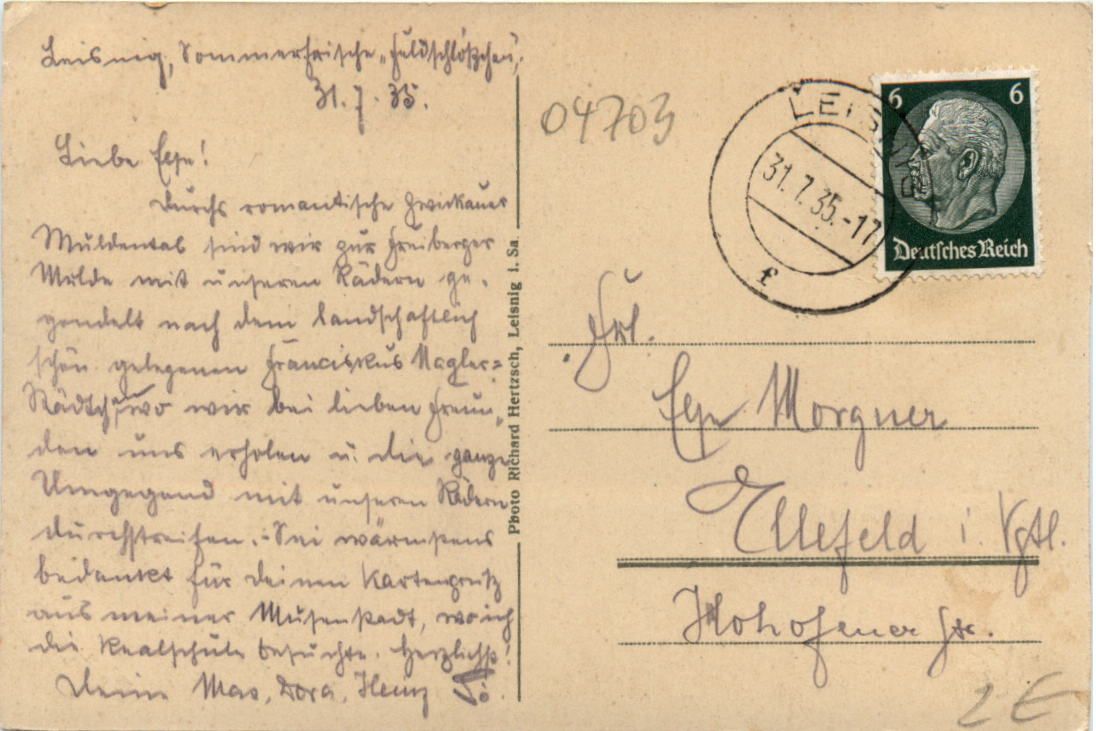 Leisnig, Sommerfrische „Feldschlößchen“,
31.7.35.
Liebe Else!
Durchs romantische Zwickauer
Muldental sind wir zur Freiberger
Mulde mit unseren Rädern ge-
gondelt nach dem landschaftlich
schön gelegenen Franciskus Nagler-
Städtchen, wo wir bei lieben Freun-
den uns erholen u. die ganze
Umgegend mit unseren Rädern
durchstreifen. - Sei wärmstens
bedankt für deinen Kartengruß
aus meiner Musenstadt, wo ich
die Realschule besuchte. Herzlichst!
Deine Max, Dora, Heinz
Photo Richard Hertzsch, Leisnig i. Sa.
04703
LEISNIG
31.7.35.-17
f
6 6
Deutsches Reich
Frl.
Else Morgner
Ellefeld i. Vgtl.
Hohofener Str.
2€